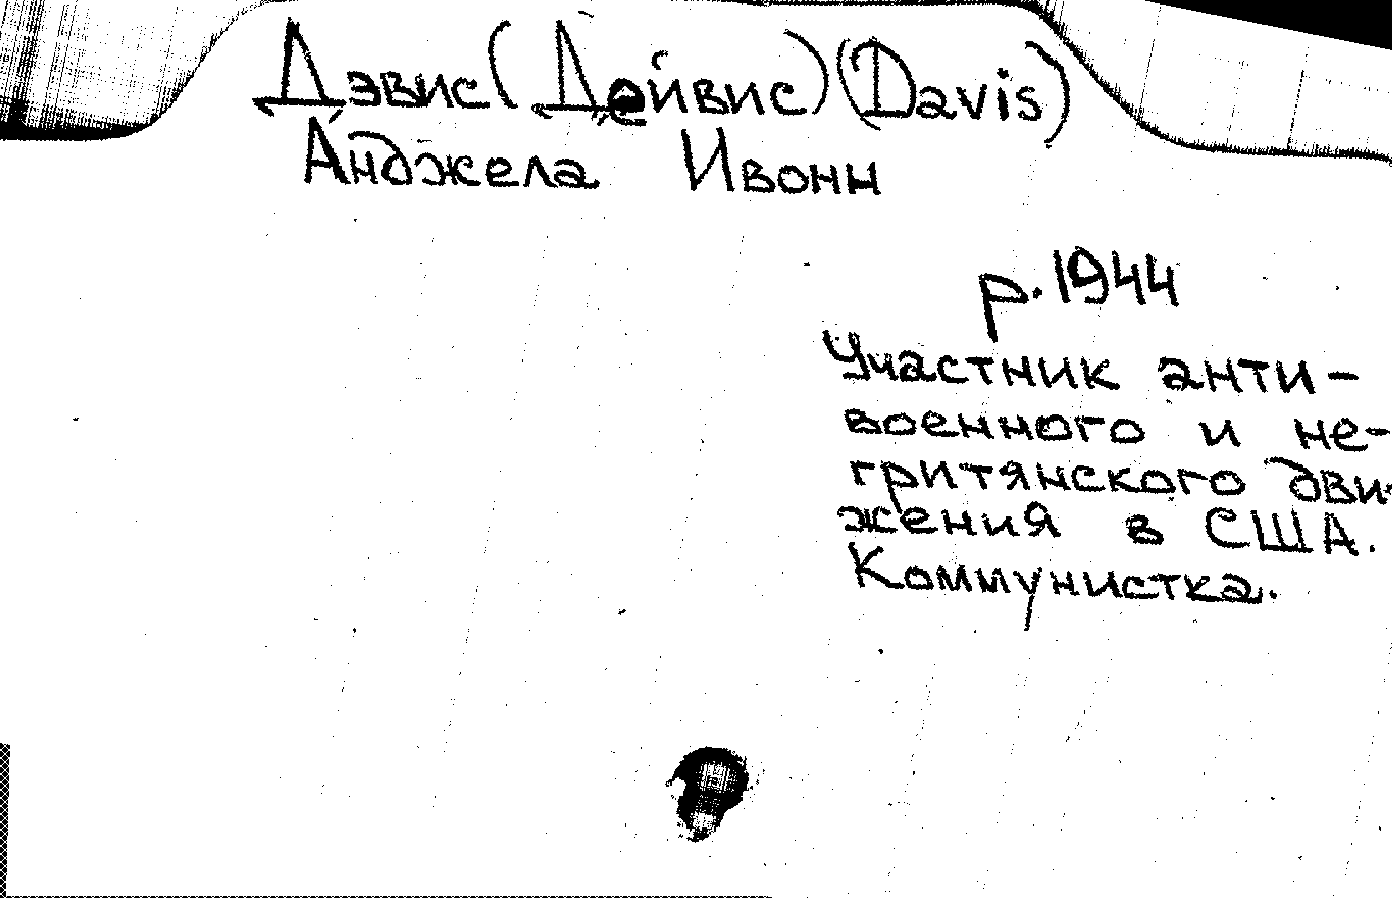 Дэвис (Дейвис) (Davis)
Анджела Ивонн
р. 1944
Участник анти-
военного и не-
гритянского дви-
жения в США.
Коммунистка.